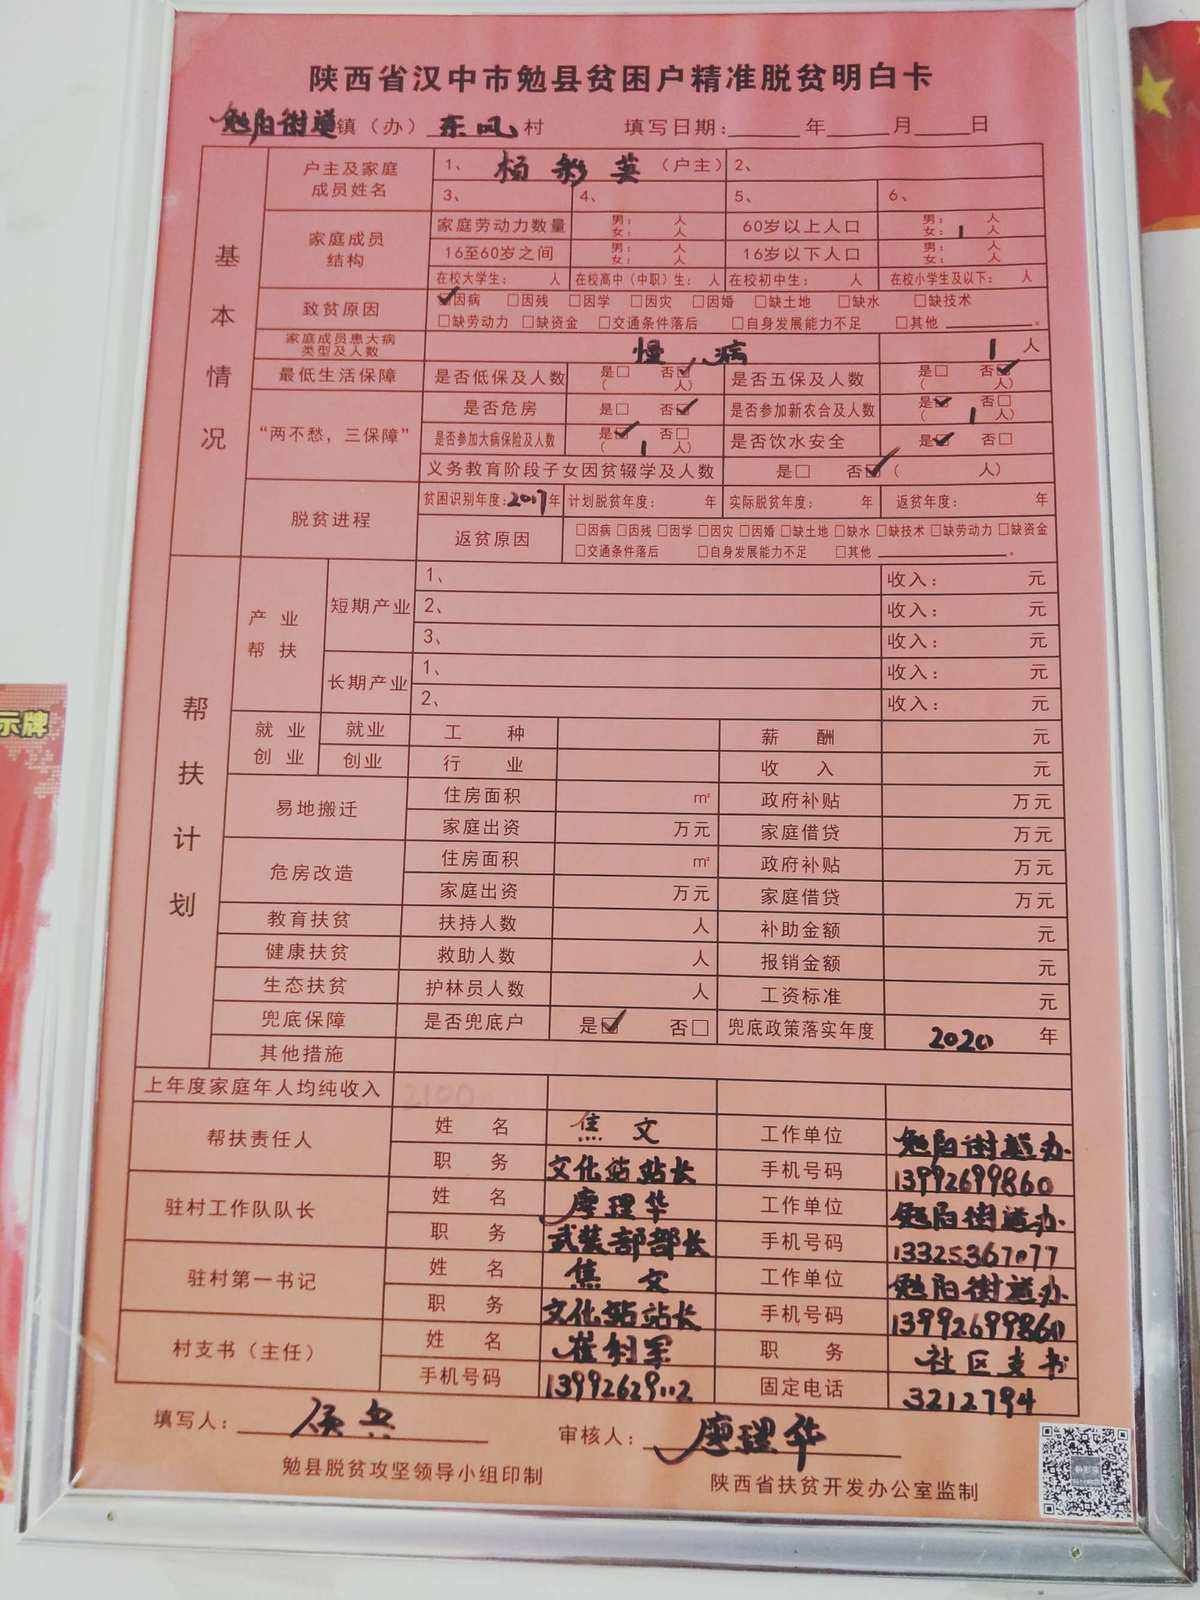 陕西省汉中市勉县贫困户精准脱贫明白卡
勉阳街道镇（办）东风村 填写日期：____年____月____日
基本情况
户主及家庭成员姓名 1、杨彩英（户主） 2、
3、 4、 5、 6、
家庭成员结构 家庭劳动力数量 男： 人 女： 人 60岁以上人口 男： 人 女：1人
16至60岁之间 男： 人 女： 人 16岁以下人口 男： 人 女： 人
在校大学生： 人 在校高中（中职）生： 人 在校初中生： 人 在校小学生及以下： 人
致贫原因 ☑因病 □因残 □因学 □因灾 □因婚 □缺土地 □缺水 □缺技术
□缺劳动力 □缺资金 □交通条件落后 □自身发展能力不足 □其他____。
家庭成员患大病类型及人数 慢病 1人
最低生活保障 是否低保及人数 是□ 否☑ （ 人） 是否五保及人数 是□ 否☑ （ 人）
“两不愁，三保障” 是否危房 是□ 否☑ 是否参加新农合及人数 是☑ 否□ （1人）
是否参加大病保险及人数 是☑ 否□ （1人） 是否饮水安全 是☑ 否□
义务教育阶段子女因贫辍学及人数 是□ 否☑（ 人）
脱贫进程 贫困识别年度：2017年 计划脱贫年度： 年 实际脱贫年度： 年 返贫年度： 年
返贫原因 □因病 □因残 □因学 □因灾 □因婚 □缺土地 □缺水 □缺技术 □缺劳动力 □缺资金
□交通条件落后 □自身发展能力不足 □其他____。
帮扶计划
产业帮扶 短期产业 1、 收入： 元
2、 收入： 元
3、 收入： 元
长期产业 1、 收入： 元
2、 收入： 元
就业创业 就业 工种 薪酬 元
创业 行业 收入 元
易地搬迁 住房面积 ㎡ 政府补贴 万元
家庭出资 万元 家庭借贷 万元
危房改造 住房面积 ㎡ 政府补贴 万元
家庭出资 万元 家庭借贷 万元
教育扶贫 扶持人数 人 补助金额 元
健康扶贫 救助人数 人 报销金额 元
生态扶贫 护林员人数 人 工资标准 元
兜底保障 是否兜底户 是☑ 否□ 兜底政策落实年度 2020年
其他措施
上年度家庭年人均纯收入
帮扶责任人 姓名 焦文 工作单位 勉阳街道办
职务 文化站站长 手机号码 13992699860
驻村工作队队长 姓名 廖理华 工作单位 勉阳街道办
职务 武装部部长 手机号码 13325367077
驻村第一书记 姓名 焦文 工作单位 勉阳街道办
职务 文化站站长 手机号码 13992699860
村支书（主任） 姓名 崔利军 职务 社区支书
手机号码 13992629112 固定电话 3212794
填写人： 审核人：廖理华
勉县脱贫攻坚领导小组印制 陕西省扶贫开发办公室监制
示牌